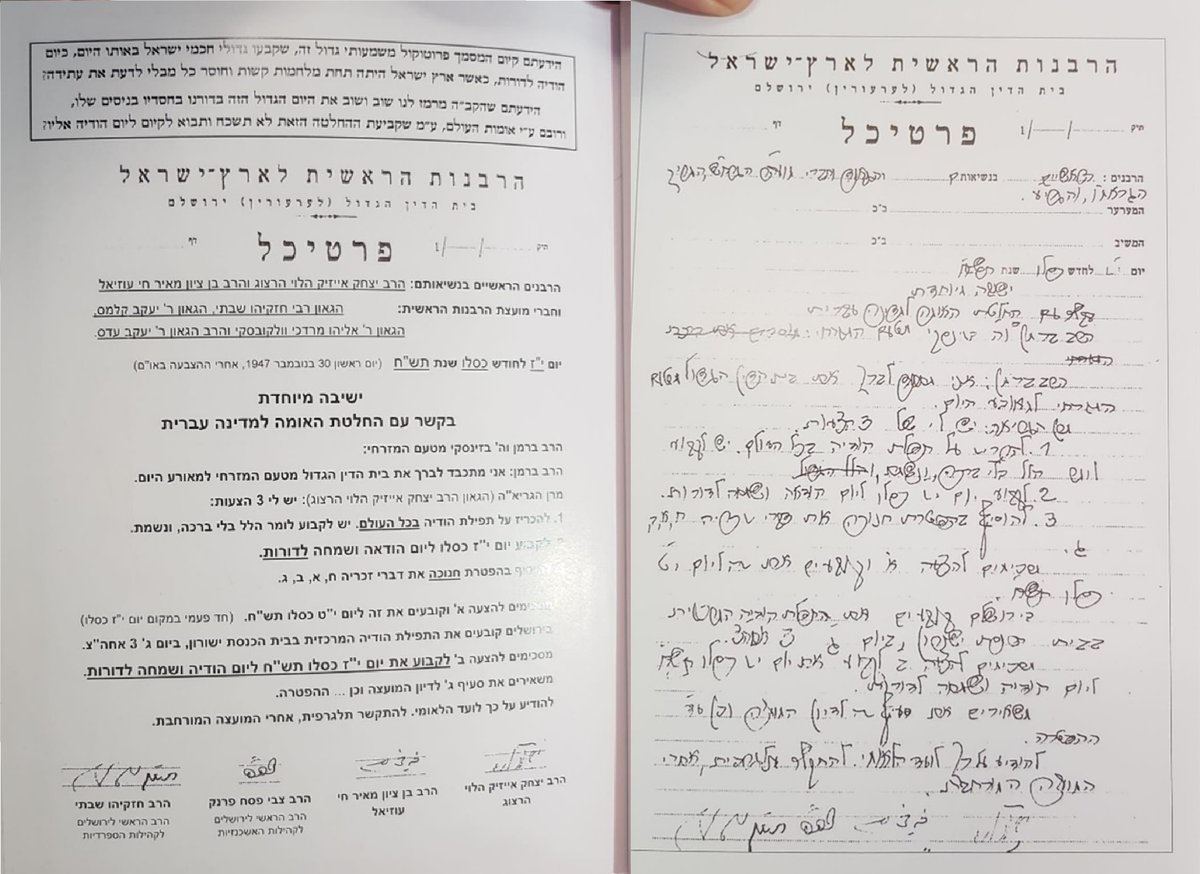 הרבנות הראשית לארץ־ישראל
בית הדין הגדול (לערעורין) ירושלים
פרטיכל
תיק 1/ דף
הרבנים: הראשיים בנשיאות
המערער ב״כ
המשיב ב״כ
יום לחדש כסלו שנת תש״ח
ישיבה מיוחדת
בקשר עם החלטת האומה למדינה עברית
הרב ברמן: אני מתכבד לברך את בית הדין הגדול מטעם
המזרחי למאורע היום.
יש לי 3 הצעות.
1. להכריז על תפלת הודיה בכל העולם. יש לקבוע
הלל בלי ברכה, ונשמת,
2. לקבוע יום כסלו ליום הודאה ושמחה לדורות.
3. להוסיף בהפטרת חנוכה את דברי זכריה ח, א, ב,
ג.
מסכימים להצעה א' וקובעים את זה ליום י״ט
כסלו תש״ח.
בירושלים קובעים את התפלת הודיה המרכזית
בבית הכנסת ישורון, ביום ג' 3 אחה״צ.
מסכימים להצעה ב' לקבוע את יום כסלו תש״ח
ליום הודיה ושמחה לדורות.
משאירים את סעיף ג' לדיון המועצה וכן
ההפטרה.
להודיע על כך לועד הלאומי. להתקשר תלגרפית, אחרי
המועצה המורחבת.
הידעתם קיום המסמך פרוטוקול משמעותי גדול זה, שקבעו גדולי חכמי ישראל באותו היום, כיום
הודיה לדורות, כאשר ארץ ישראל היתה תחת מלחמות קשות וחוסר כל מבלי לדעת את עתידה?
הידעתם שהקב״ה מרמז לנו שוב ושוב את היום הגדול הזה בדורנו בחסדיו בניסים שלו,
ורובם ע״י אומות העולם, ע״מ שקביעת ההחלטה הזאת לא תשכח ותבוא לקיום ליום הודיה אליו?
הרבנות הראשית לארץ־ישראל
בית הדין הגדול (לערעורין) ירושלים
פרטיכל
תיק 1/ דף
הרבנים הראשיים בנשיאותם: הרב יצחק אייזיק הלוי הרצוג והרב בן ציון מאיר חי עוזיאל
וחברי מועצת הרבנות הראשית: הגאון רבי חזקיהו שבתי, הגאון ר' יעקב קלמס,
הגאון ר' אליהו מרדכי וולקובסקי והרב הגאון ר' יעקב עדס.
יום י״ז לחודש כסלו שנת תש״ח (יום ראשון 30 בנובמבר 1947, אחרי ההצבעה באו״ם)
ישיבה מיוחדת
בקשר עם החלטת האומה למדינה עברית
הרב ברמן וה' בזינסקי מטעם המזרחי:
הרב ברמן: אני מתכבד לברך את בית הדין הגדול מטעם המזרחי למאורע היום.
מרן הגריא״ה (הגאון הרב יצחק אייזיק הלוי הרצוג): יש לי 3 הצעות:
1. להכריז על תפילת הודיה בכל העולם. יש לקבוע לומר הלל בלי ברכה, ונשמת.
לקבוע יום י״ז כסלו ליום הודאה ושמחה לדורות.
בהפטרת חנוכה את דברי זכריה ח, א, ב, ג.
מסכימים להצעה א' וקובעים את זה ליום י״ט כסלו תש״ח. (חד פעמי במקום יום י״ז כסלו)
בירושלים קובעים את התפילת הודיה המרכזית בבית הכנסת ישורון, ביום ג' 3 אחה״צ.
מסכימים להצעה ב' לקבוע את יום י״ז כסלו תש״ח ליום הודיה ושמחה לדורות.
משאירים את סעיף ג' לדיון המועצה וכן ... ההפטרה.
להודיע על כך לועד הלאומי. להתקשר תלגרפית, אחרי המועצה המורחבת.
הרב יצחק אייזיק הלוי הרצוג
הרב בן ציון מאיר חי עוזיאל
הרב צבי פסח פרנק
הרב הראשי לירושלים
לקהילות האשכנזיות
הרב חזקיהו שבתי
הרב הראשי לירושלים
לקהילות הספרדיות